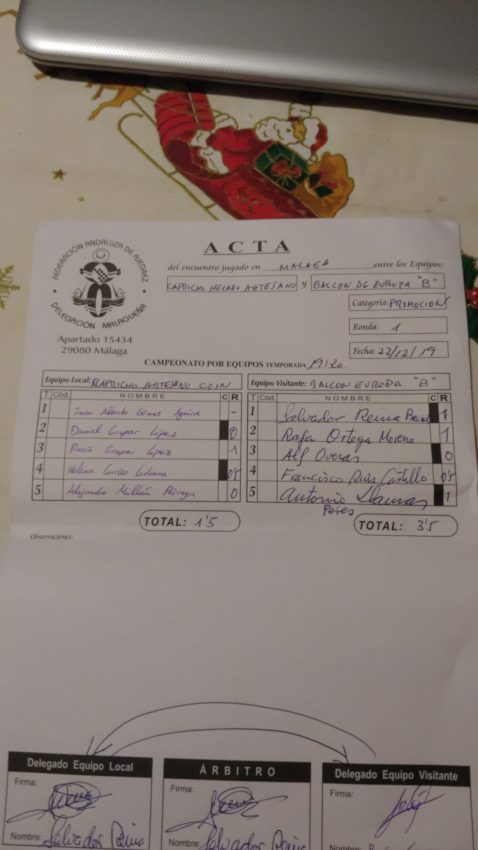 ACTA
FEDERACIÓN ANDALUZA DE AJEDREZ
DELEGACIÓN MALAGUEÑA
Apartado 15434
29080 Málaga
del encuentro jugado en MALAGA entre los Equipos:
CAPRICHO HELADO ARTESANO y BALCON DE EUROPA "B"
Categoría: PROMOCION
Ronda: 1
Fecha: 22/12/19
CAMPEONATO POR EQUIPOS TEMPORADA 19/20
Equipo Local: CAPRICHO ARTESANO COIN Equipo Visitante: BALCON EUROPA "B"
T Cód. NOMBRE C R T Cód. NOMBRE C R
1 Juan Alberto Gómez - 1 Salvador Reina 1
2 Daniel Gaspar López 0 2 Rafa Ortega Moreno 1
3 Rocío Gaspar López 1 3 Alf Overas 0
4 Helena 0'5 4 Francisco Ruiz Castillo 0'5
5 Alejandro 0 5 Antonio Llamas 1
Pérez
TOTAL: 1'5 TOTAL: 3'5
Observaciones:
Delegado Equipo Local ÁRBITRO Delegado Equipo Visitante
Firma: Firma: Firma:
Nombre: Salvador Reina Nombre: Salvador Reina Nombre: